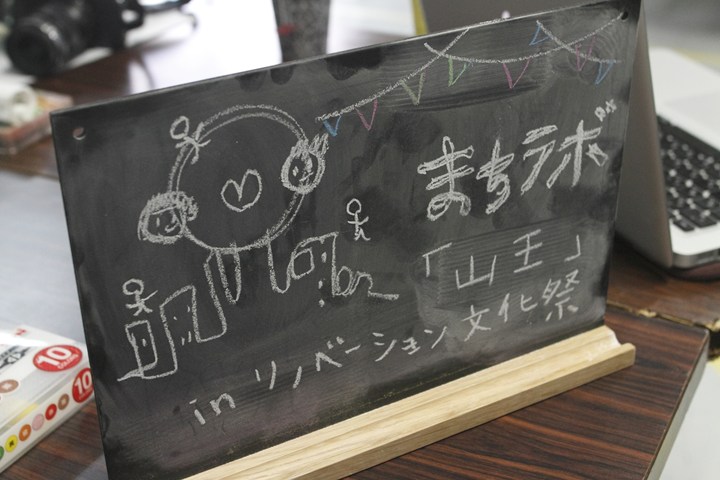 まちラボ
「山王」
in リノベーション文化祭
10
10